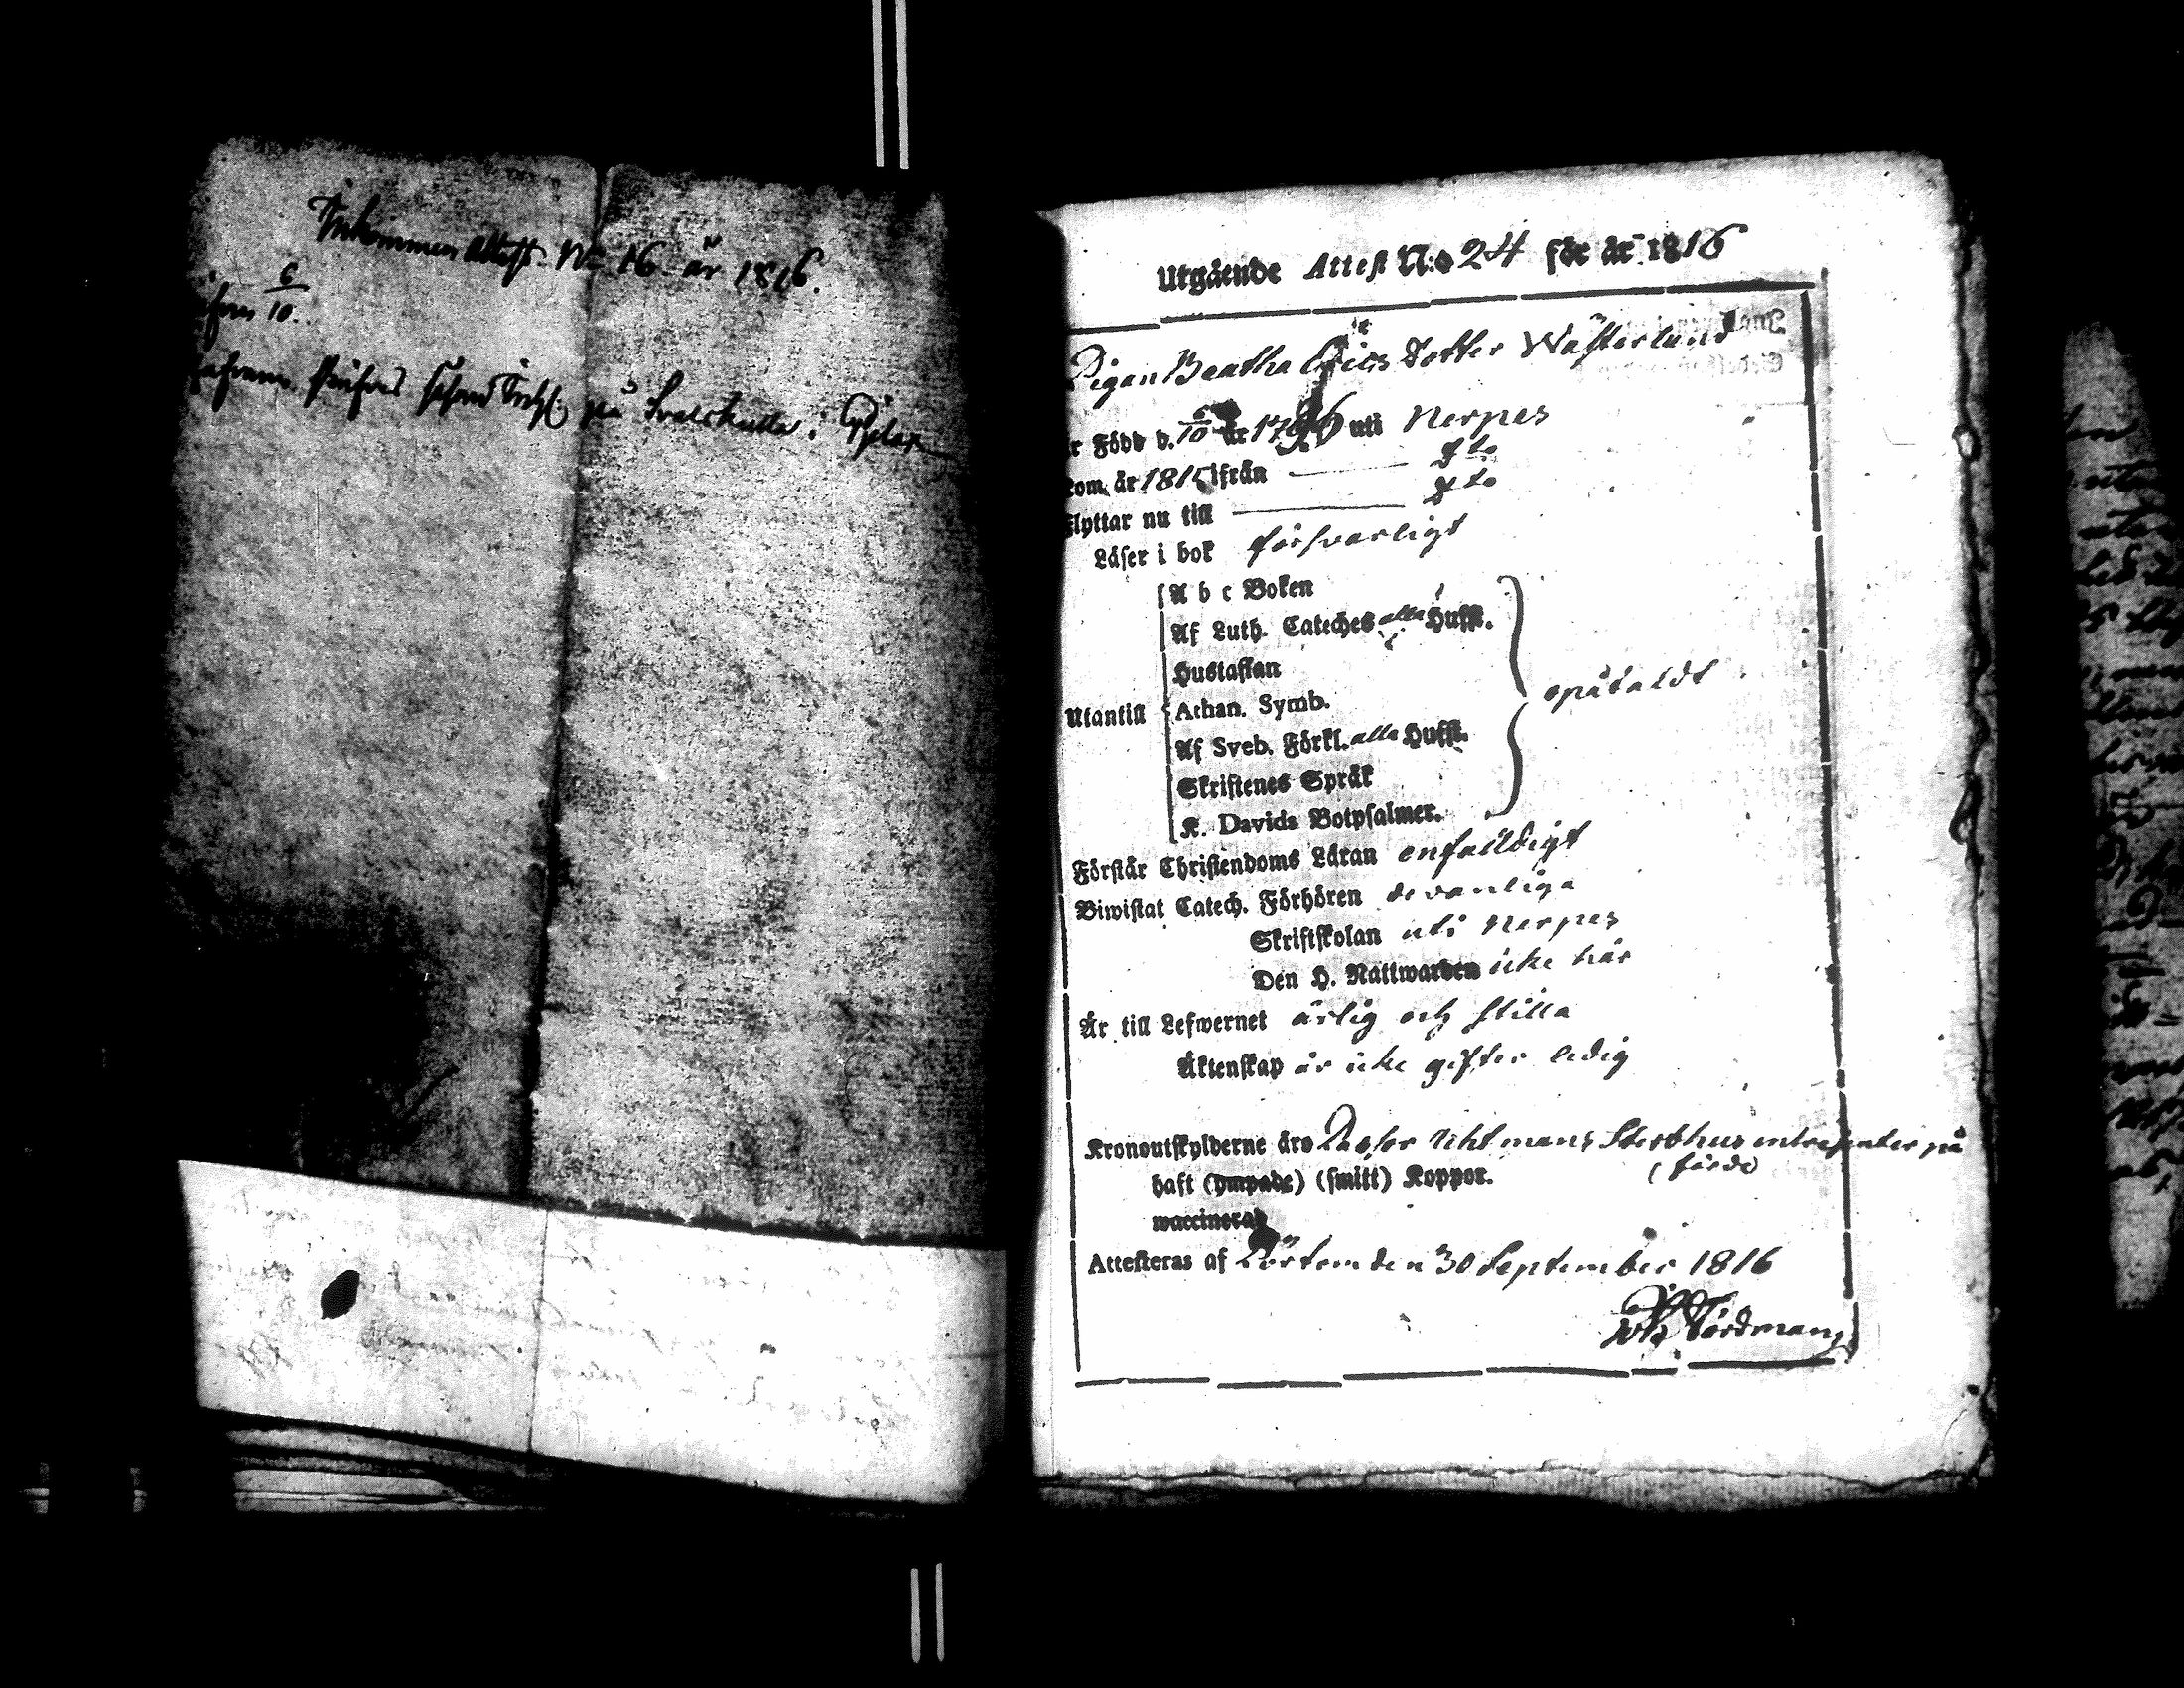 Inkommen Attest. No 16 år 1816.
6/10.
på Svalskulla i
Utgående Attest N:o 24 för år 1816
Pigan Beatha Erics Dotter Wästerlund
är Född d. 6/10 år 1796 uti Nerpes
kom år 1815 ifrån — d:to
flyttar nu till — d:to
Läser i bok försvarligt
A b c Boken
Af Luth. Cateches alla Hufst.
Hustaflan
Utantill Athan. Symb. opåtaldt
Af Sveb. Förkl. alla Hufst.
Skriftenes Språk
K. Davids Botpsalmer.
Förstår Christendoms Läran enfaldigt
Biwistat Catech. Förhören de vanliga
Skriftskolan uti Nerpes
Den H. Nattwarden icke här
Är till Lefwernet ärlig och stilla
Äktenskap är icke gifter ledig
Kronoutskylderne äro på
haft (ympade) (smitt) Koppor.
waccinerad
Attesteras af Pörtom den 30 September 1816
Joh Tördman